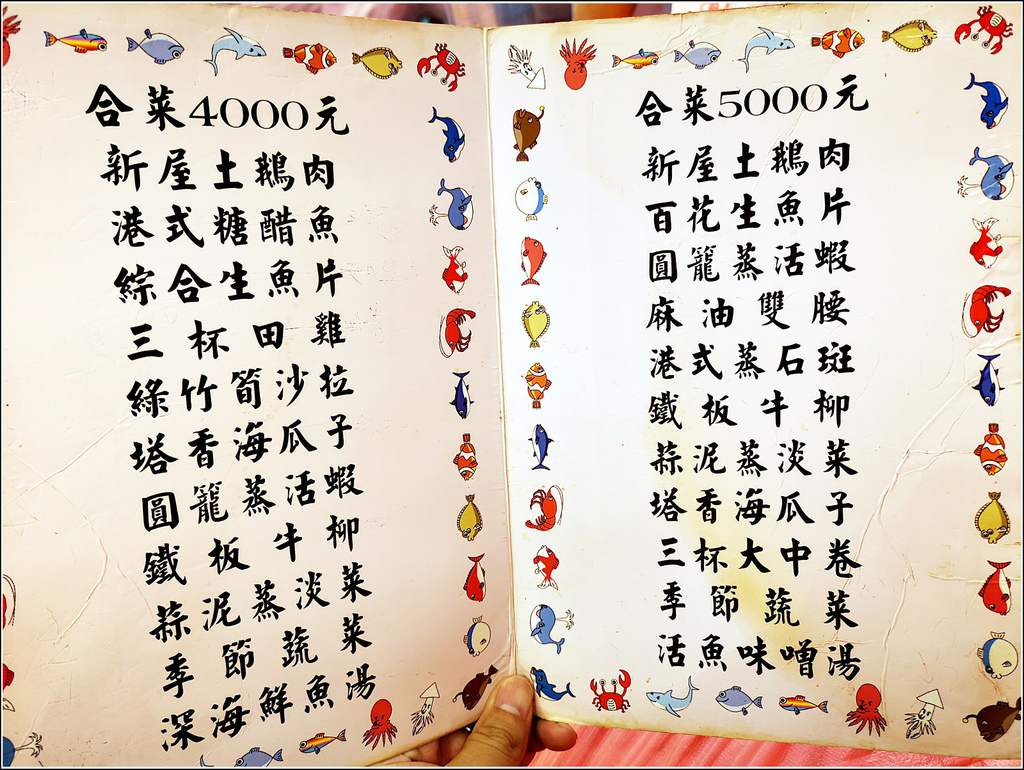 合菜4000元
新屋土鵝肉
港式糖醋魚
綜合生魚片
三杯田雞
綠竹筍沙拉
塔香海瓜子
圓籠蒸活蝦
鐵板牛柳
蒜泥蒸淡菜
季節蔬菜
深海鮮魚湯
合菜5000元
新屋土鵝肉
百花生魚片
圓籠蒸活蝦
麻油雙腰
港式蒸石斑
鐵板牛柳
蒜泥蒸淡菜
塔香海瓜子
三杯大中卷
季節蔬菜
活魚味噌湯